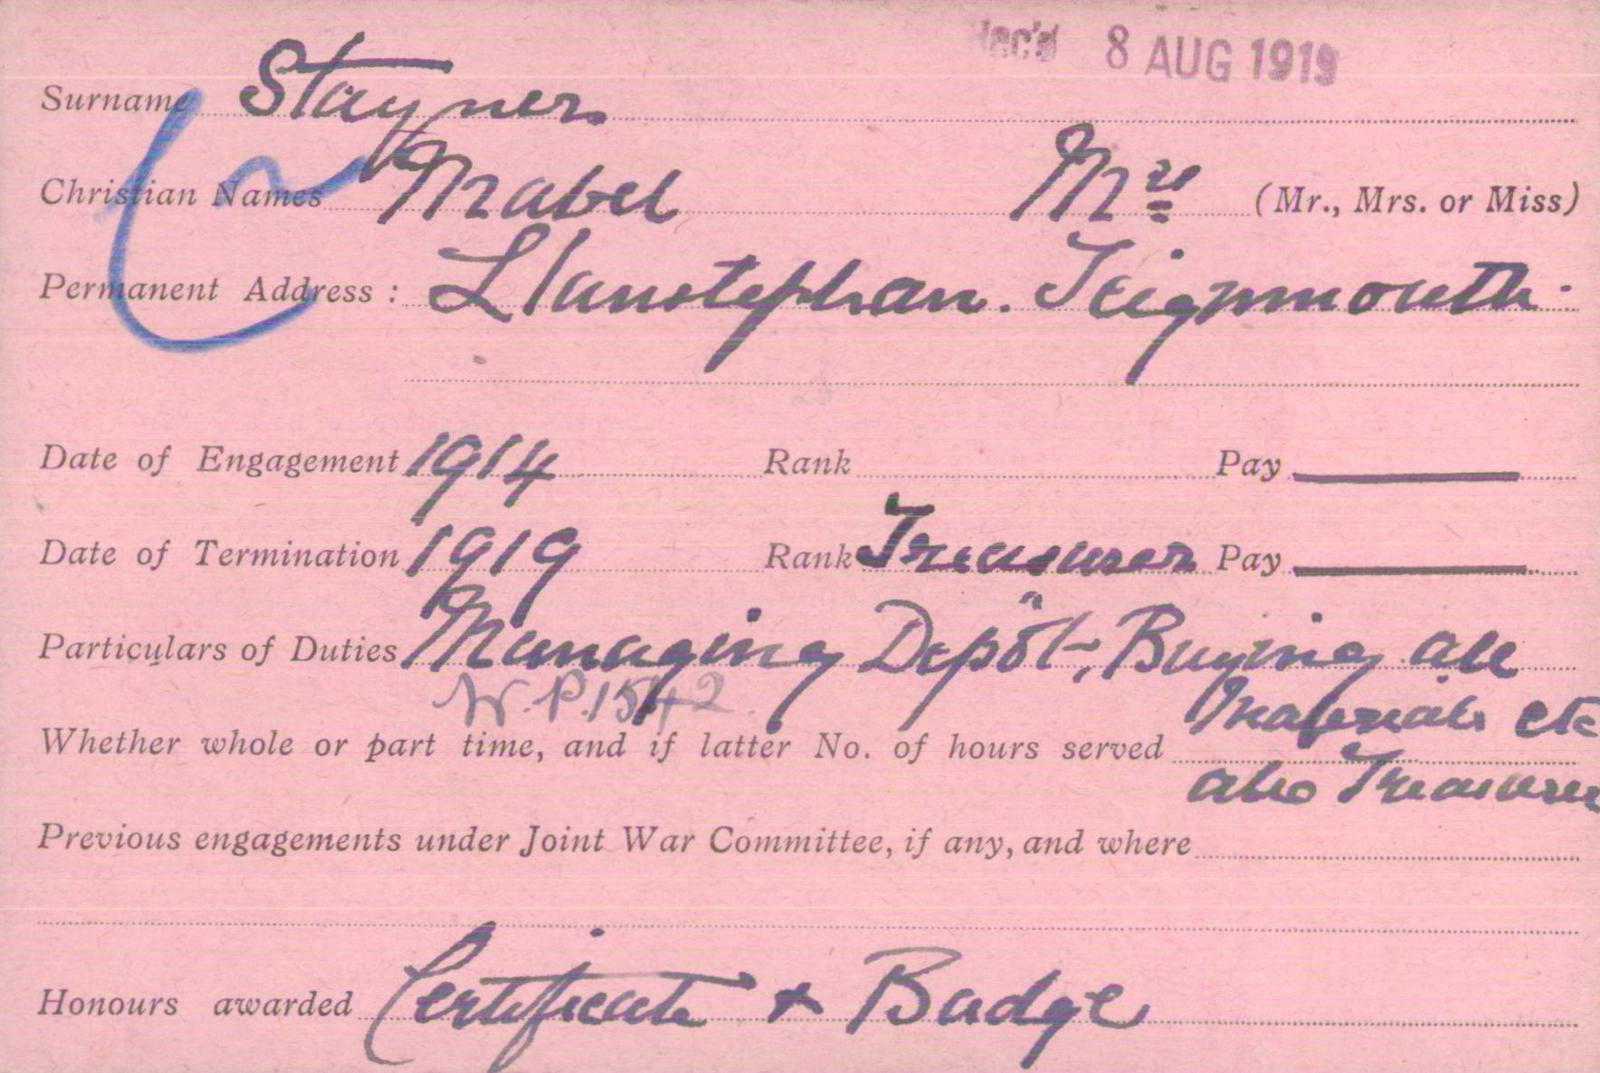 Rec'd 8 AUG 1919
Surname Stayner
Christian Names Mabel Mrs (Mr., Mrs. or Miss)
Permanent Address : Llanstephan. Teignmouth.
Date of Engagement 1914 Rank Pay
Date of Termination 1919 Rank Treasurer Pay
Particulars of Duties Managing Depôt, Buying all
W.P.1542 Materials etc
Whether whole or part time, and if latter No. of hours served
also Treasurer
Previous engagements under Joint War Committee, if any, and where
Honours awarded Certificate + Badge